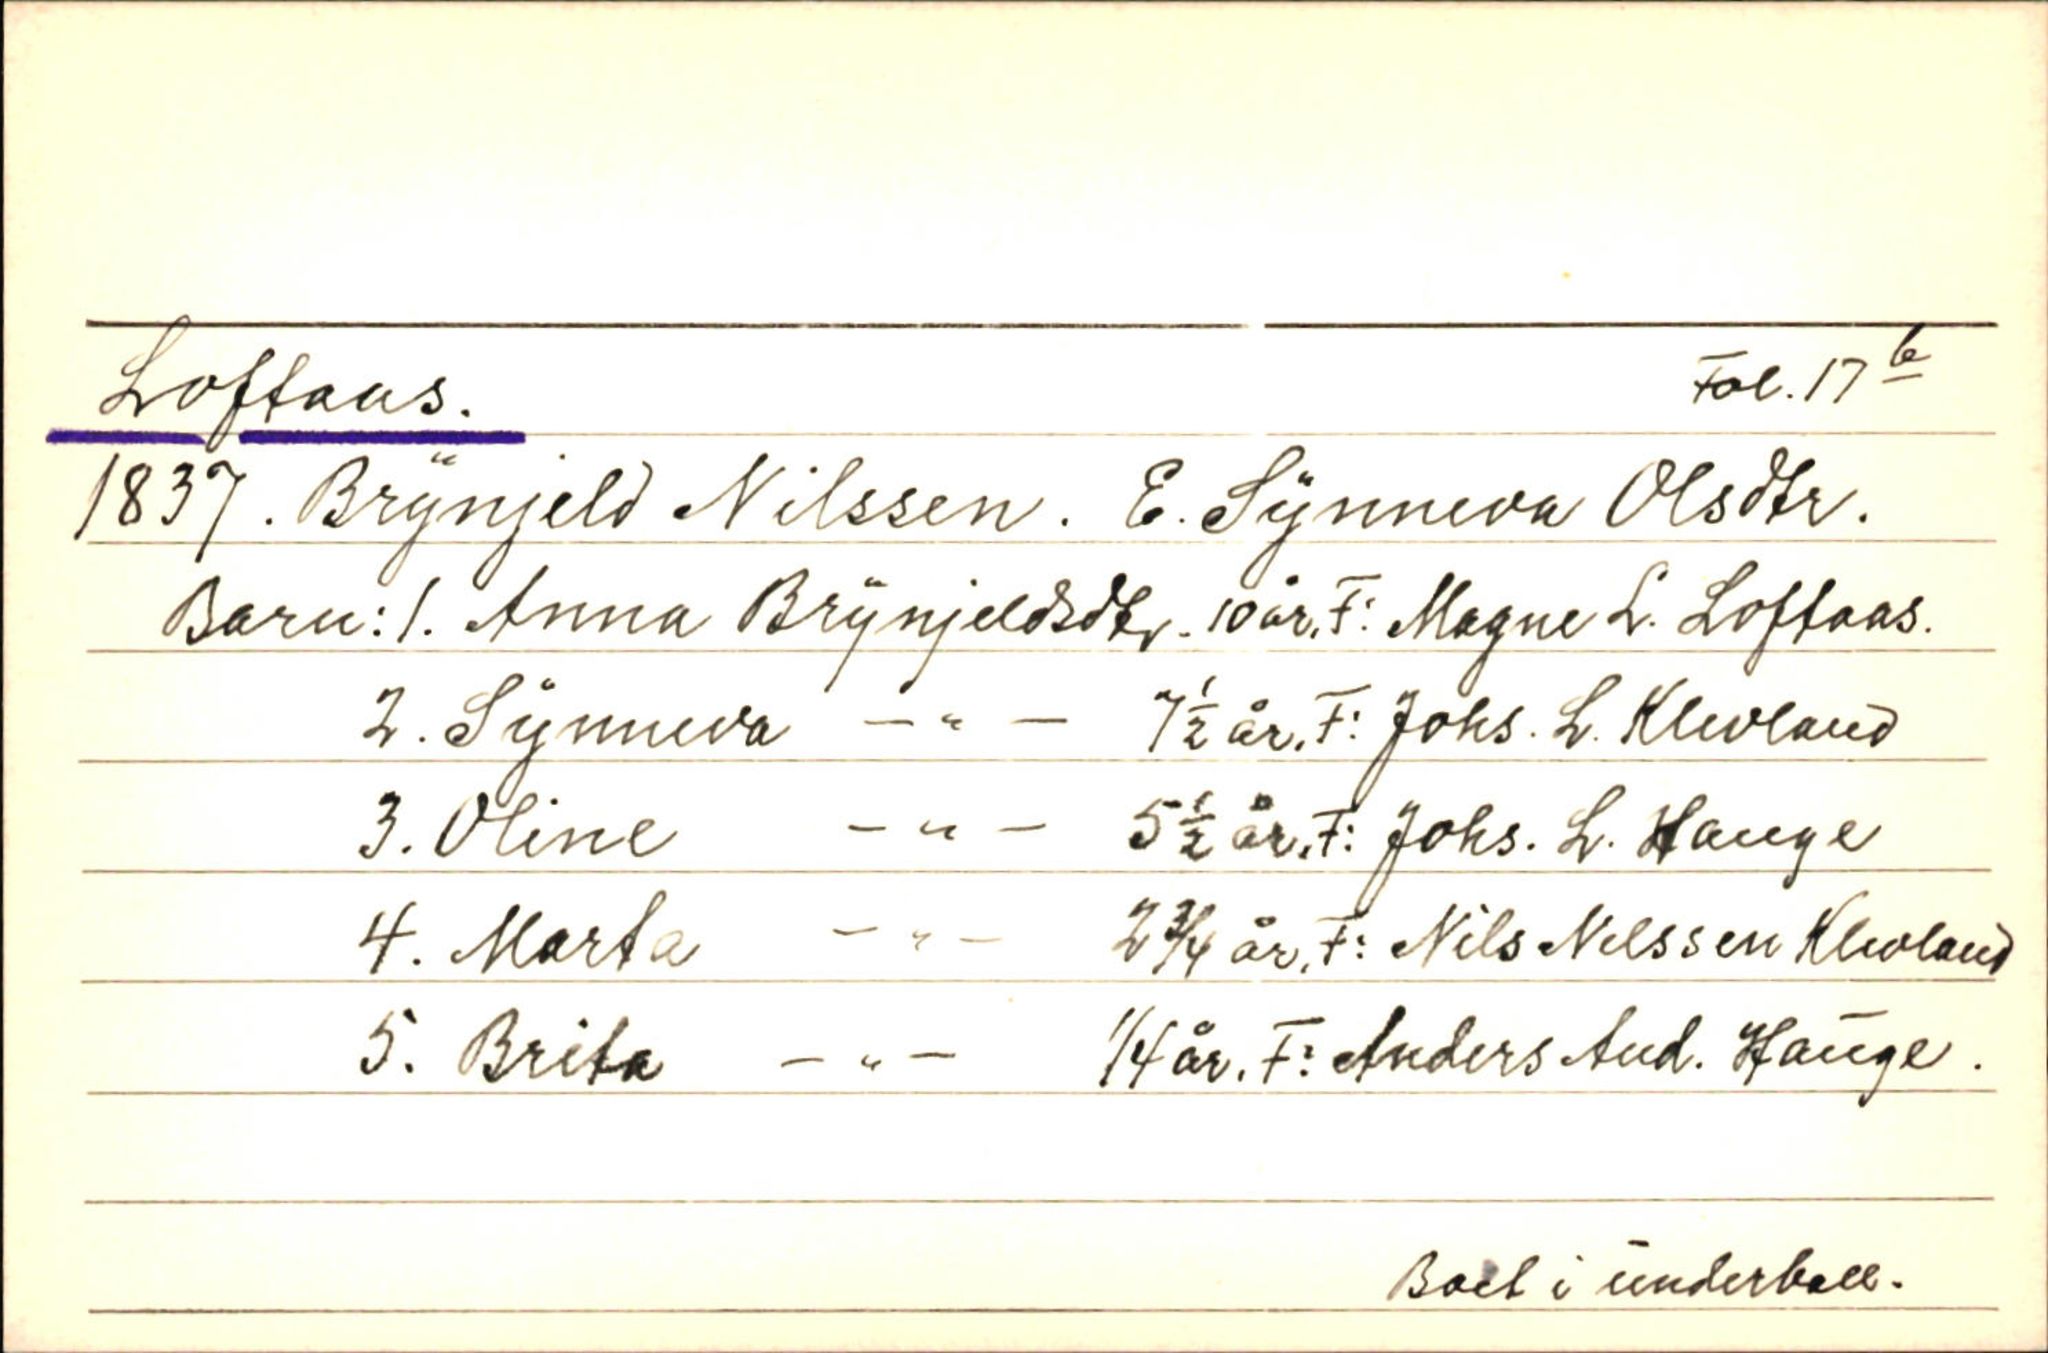 Loftaas. Fol. 17 b
1837. Brÿnjeld Nilssen. E. Sÿnneva Olsdtr.
Barn: 1. Anna Brÿnjeldsdtr. 10 år, F: Magne L. Loftaas.
2. Sÿnneva — " — 7 1/2 år, F: Johs. L. Klevland
3. Oline — " — 5 1/2 år, F: Johs. L. Hauge
4. Marta — " — 2 3/4 år, F: Nils Nilssen Klevland
5. Brita — " — 1/4 år. F: Anders And. Hauge.
Boet i underball.